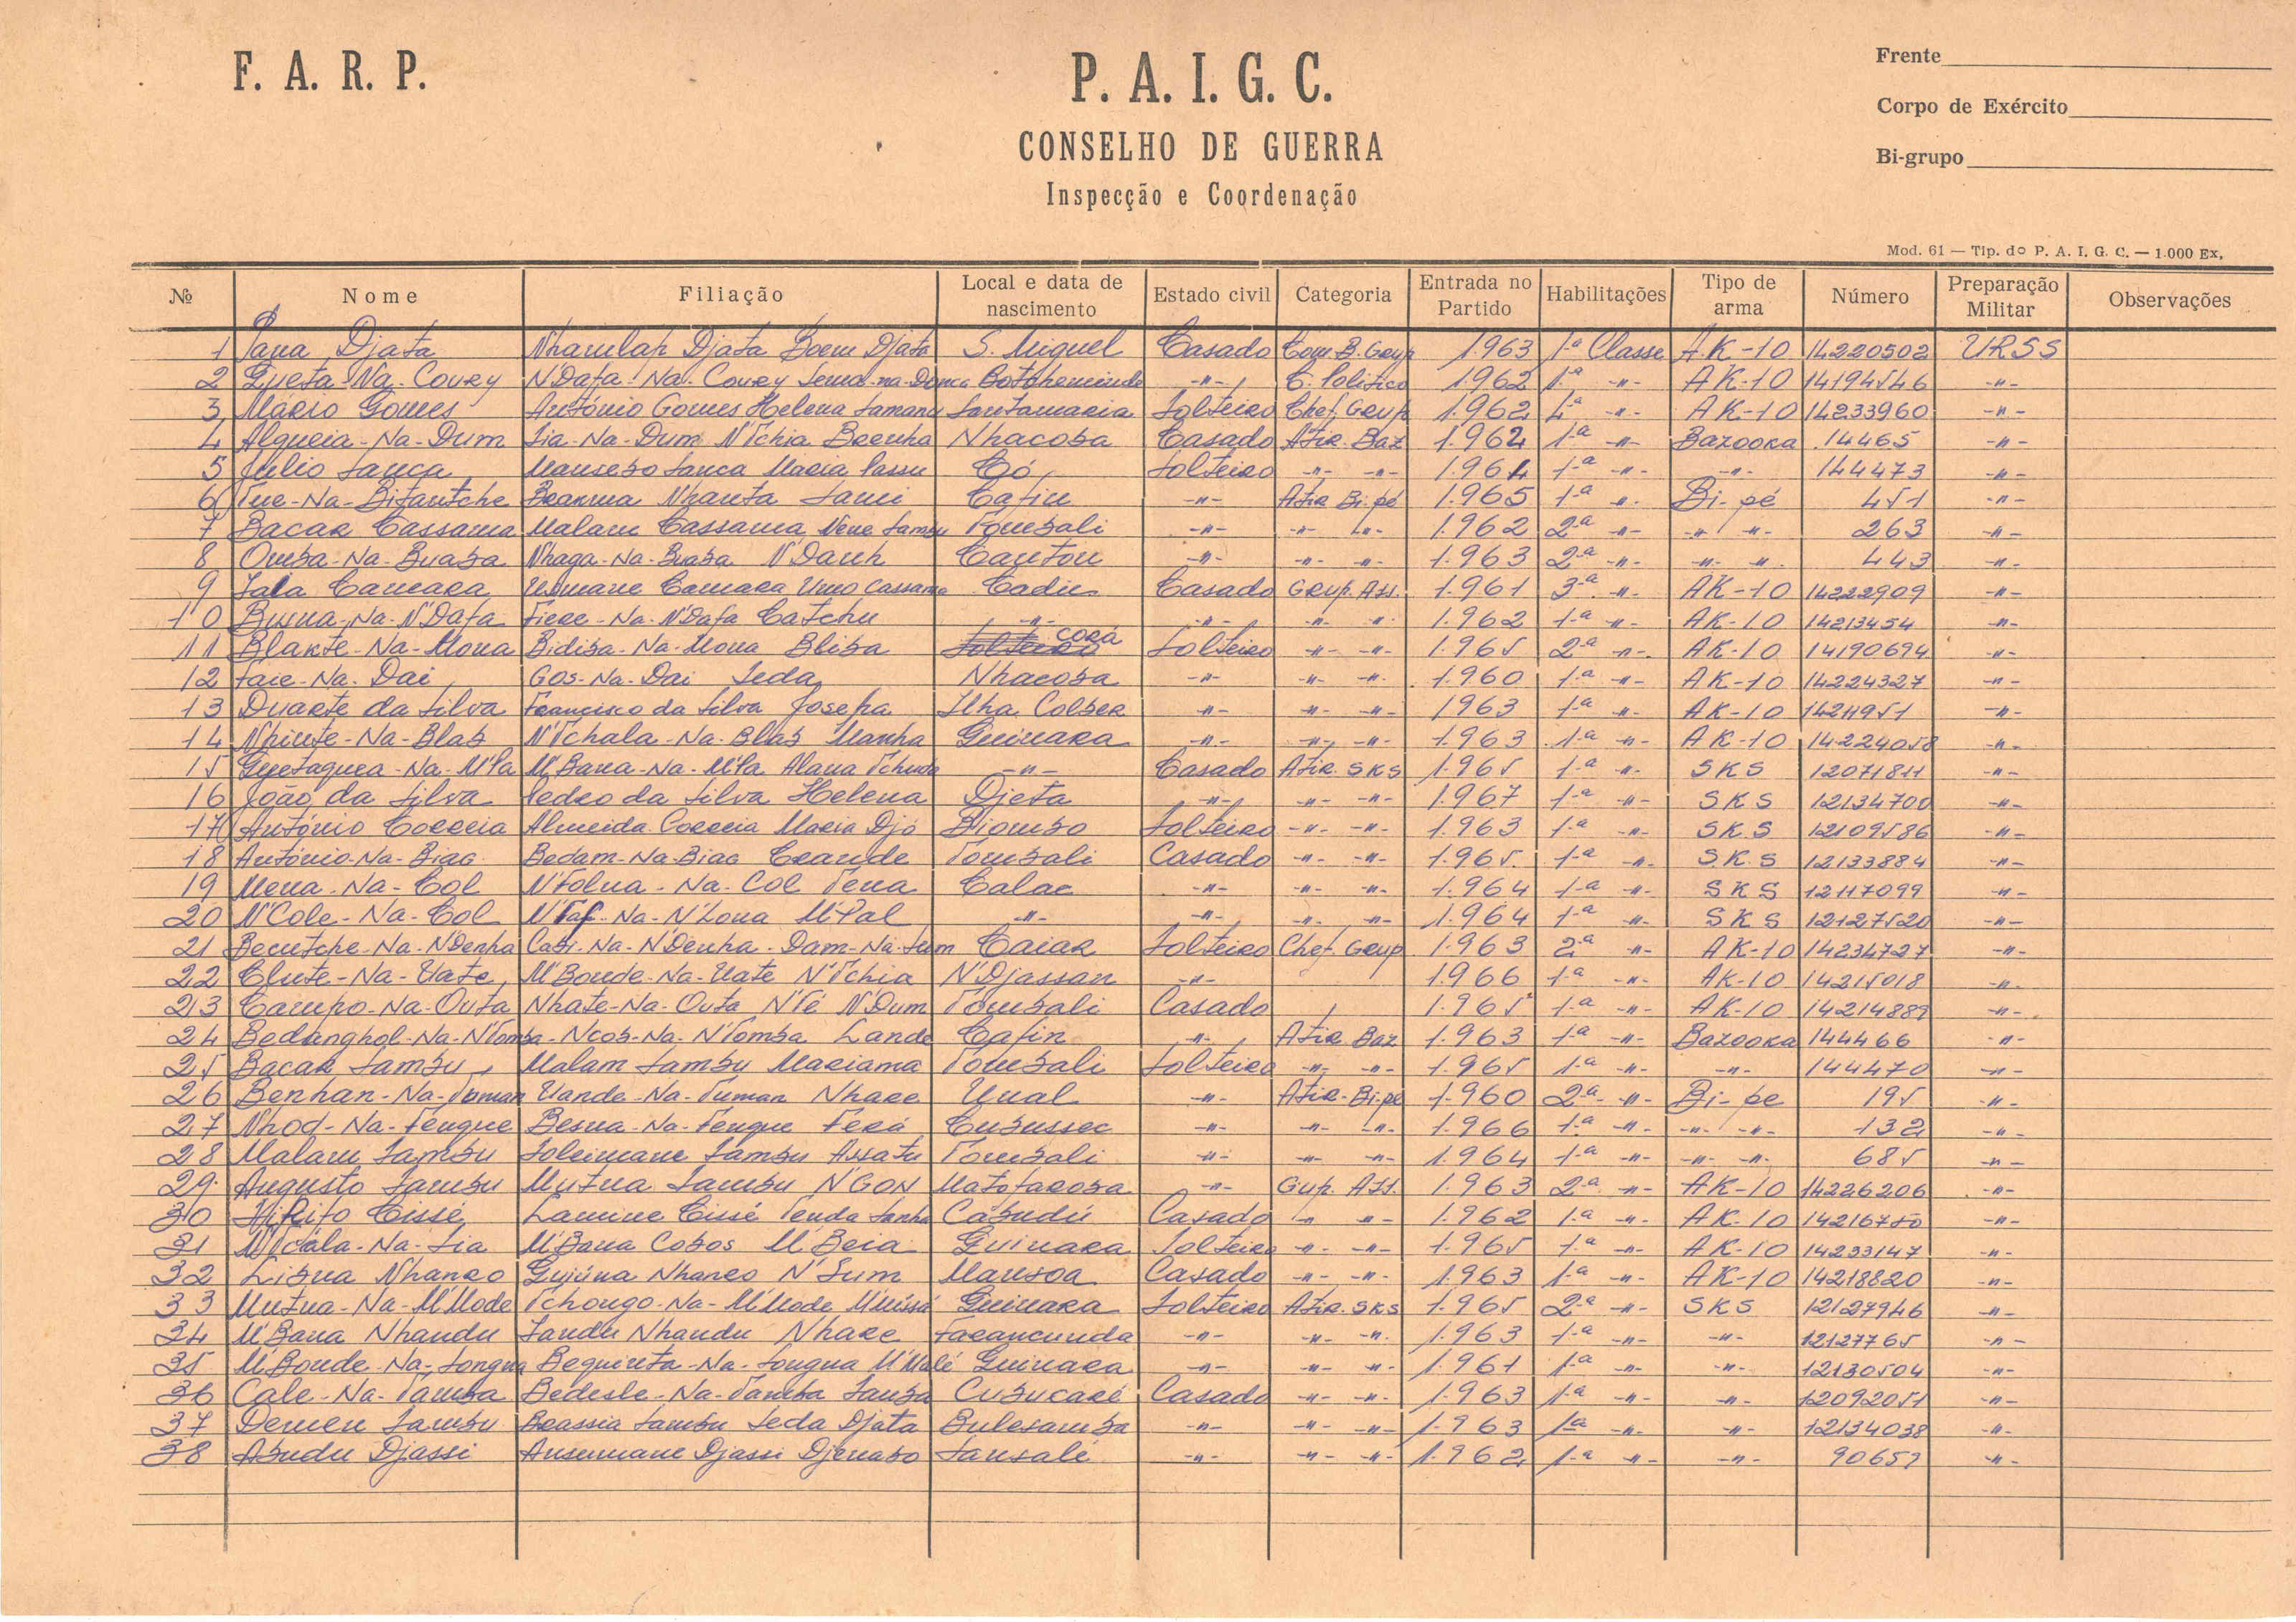 F. A. R. P.
P. A. I. G. C.
CONSELHO DE GUERRA
Inspecção e Coordenação
Frente
Corpo de Exército
Bi-grupo
Mod. 61 — Tip. do P. A. I. G. C. — 1.000 Ex.
№ Nome Filiação Local e data de nascimento Estado civil Categoria Entrada no Partido Habilitações Tipo de arma Número Preparação Militar Observações
1 Pana Djata Nhamlah Djata Boem Djata S. Miguel Casado Com. B. Grup 1.963 1.ª Classe A.K-10 14220502 URSS
2 Gueta-Na-Coury N'Dafa-Na-Coury -"- C. Politico 1.962 1.ª -"- AK-10 14194546 -"-
3 Mário Gomes António Gomes Helena Santamaria Solteiro Chef. Grup 1.962 4ª -"- AK-10 14233960 -"-
4 Algueia-Na-Dum Sia-Na-Dum N'Tchia Nhacoba Casado Atir. Baz 1.962 1ª -"- Bazooka 14465 -"-
5 Júlio Sanca Sanca Maria Có Solteiro -"- -"- 1.964 1.ª -"- -"- 144473 -"-
6 Tue-Na-Bitantche Nhanta Sami Cafin -"- Atir Bi-pé 1.965 1.ª -"- Bi-pé 451 -"-
7 Bacar Cassama Malam Cassama Nene Sambu Tombali -"- -"- -"- 1.962 2ª -"- -"- -"- 263 -"-
8 Omba-Na-Buaba Nhaga-Na-Buaba N'Danh Cantou -"- -"- -"- 1.963 2.ª -"- -"- -"- 443 -"-
9 Jala Camara Usmane Camara Umo Cassama Cadic Casado Grup. Ass. 1.961 3.ª -"- AK-10 14222909 -"-
10 Buna-Na-N'Dafa Fiere-Na-N'Dafa Catchu -"- -"- -"- -"- 1.962 1.ª -"- AK-10 14213454 -"-
11 Blakte-Na-Mona Bidiba-Na-Mona Bliba Corá Solteiro -"- -"- 1.965 2ª -"- AK-10 14190694 -"-
12 Faie-Na-Dai Gos-Na-Dai Seda Nhacoba -"- -"- -"- 1.960 1.ª -"- AK-10 14224327 -"-
13 Duarte da Silva Francisco da Silva Josefa Ilha Colber -"- -"- -"- 1963 1.ª -"- AK-10 14211951 -"-
14 Nhinte-Na-Blab N'Tchala-Na-Blab Manha Guinara -"- -"- -"- 1.963 1.ª -"- AK-10 14224058 -"-
15 Guetaguea-Na-M'Pa M'Bana-Na-M'Pa Alana Tchuda -"- Casado Atir. SKS 1.965 1.ª -"- SKS 12071811 -"-
16 João da Silva Pedro da Silva Helena Djeta -"- -"- -"- 1.967 1.ª -"- SKS 12134700 -"-
17 António Correia Almeida Correia Maria Djó Biombo Solteiro -"- -"- 1.963 1.ª -"- SKS 12109586 -"-
18 António-Na-Biag Bedam-Na-Biag Crande Tombali Casado -"- -"- 1.965 1.ª -"- S.K.S 12133884 -"-
19 Mena-Na-Col N'Folna-Na-Col Tena Calac -"- -"- -"- 1.964 1.ª -"- SKS 12117099 -"-
20 N'Cole-Na-Col N'Taf-Na-N'Lona M'Pal -"- -"- -"- -"- 1.964 1.ª -"- SKS 12127520 -"-
21 Becutche-Na-N'Denha Cabi-Na-N'Denha-Dam-Na-Sum Caiar Solteiro Chef. Grup 1.963 2.ª -"- AK-10 14234727 -"-
22 Clute-Na-Uate M'Bonde-Na-Uate N'Tchia N'Djassan -"- 1.966 1.ª -"- AK-10 14215018 -"-
23 Campo-Na-Outa Nhate-Na-Outa N'Té N'Dum Tombali Casado 1.965 1.ª -"- AK-10 14214889 -"-
24 Bedanghol-Na-N'Tomba Ncob-Na-N'Tomba Lande Cafin -"- Atir. Baz 1.963 1.ª -"- Bazooka 144466 -"-
25 Bacar Sambu Malam Sambu Mariama Tombali Solteiro -"- -"- 1.965 1.ª -"- -"- 144470 -"-
26 Benhan-Na-Tuman Uande-Na-Tuman Nhare Uual -"- Atir-Bi-pé 1.960 2.ª -"- Bi-pé 195 -"-
27 Nhod-Na-Fengue Besna-Na-Fengue Ferá Cubussec -"- -"- -"- 1.966 1.ª -"- -"- -"- 132 -"-
28 Malam Sambu Soleimane Sambu Assatu Tombali -"- -"- -"- 1.964 1.ª -"- -"- -"- 685 -"-
29 Augusto Sambu Mutna Sambu N'Gon Matofaroba -"- Gup. Ass. 1.963 2.ª -"- AK-10 14226206 -"-
30 Cissé Lamine Cissé Tenda Sanha Cabudú Casado -"- -"- 1.962 1.ª -"- AK-10 14216750 -"-
31 N'Cála-Na-Sia M'Bana Cobos M'Beia Guinara Solteiro -"- -"- 1.965 1.ª -"- AK-10 14233147 -"-
32 Lisna Nhanro Guiúna Nhanro N'Sum Mansoa Casado -"- -"- 1.963 1.ª -"- AK-10 14218820 -"-
33 Mutna-Na-M'Mode Tchongo-Na-M'Mode Guinara Solteiro Atir. SKS 1.965 2.ª -"- SKS 12127946 -"-
34 M'Bana Nhandu Sandu Nhandu Nhare Farancunda -"- -"- -"- 1.963 1.ª -"- -"- 12127765 -"-
35 M'Bonde-Na-Songna Bequinta-Na-Songna M'Malé Guinara -"- -"- -"- 1.961 1.ª -"- -"- 12130504 -"-
36 Cale-Na-Tamba Bedesle-Na-Tamba Sanba Cubucaré Casado -"- -"- 1.963 1.ª -"- -"- 12092051 -"-
37 Demen Sambu Brassia Sambu Seda Djata Bulesamba -"- -"- -"- 1.963 1ª -"- -"- 12134038 -"-
38 Abudu Djassi Ansumane Djassi Djenabo Sansalé -"- -"- -"- 1.962 1.ª -"- -"- -"-